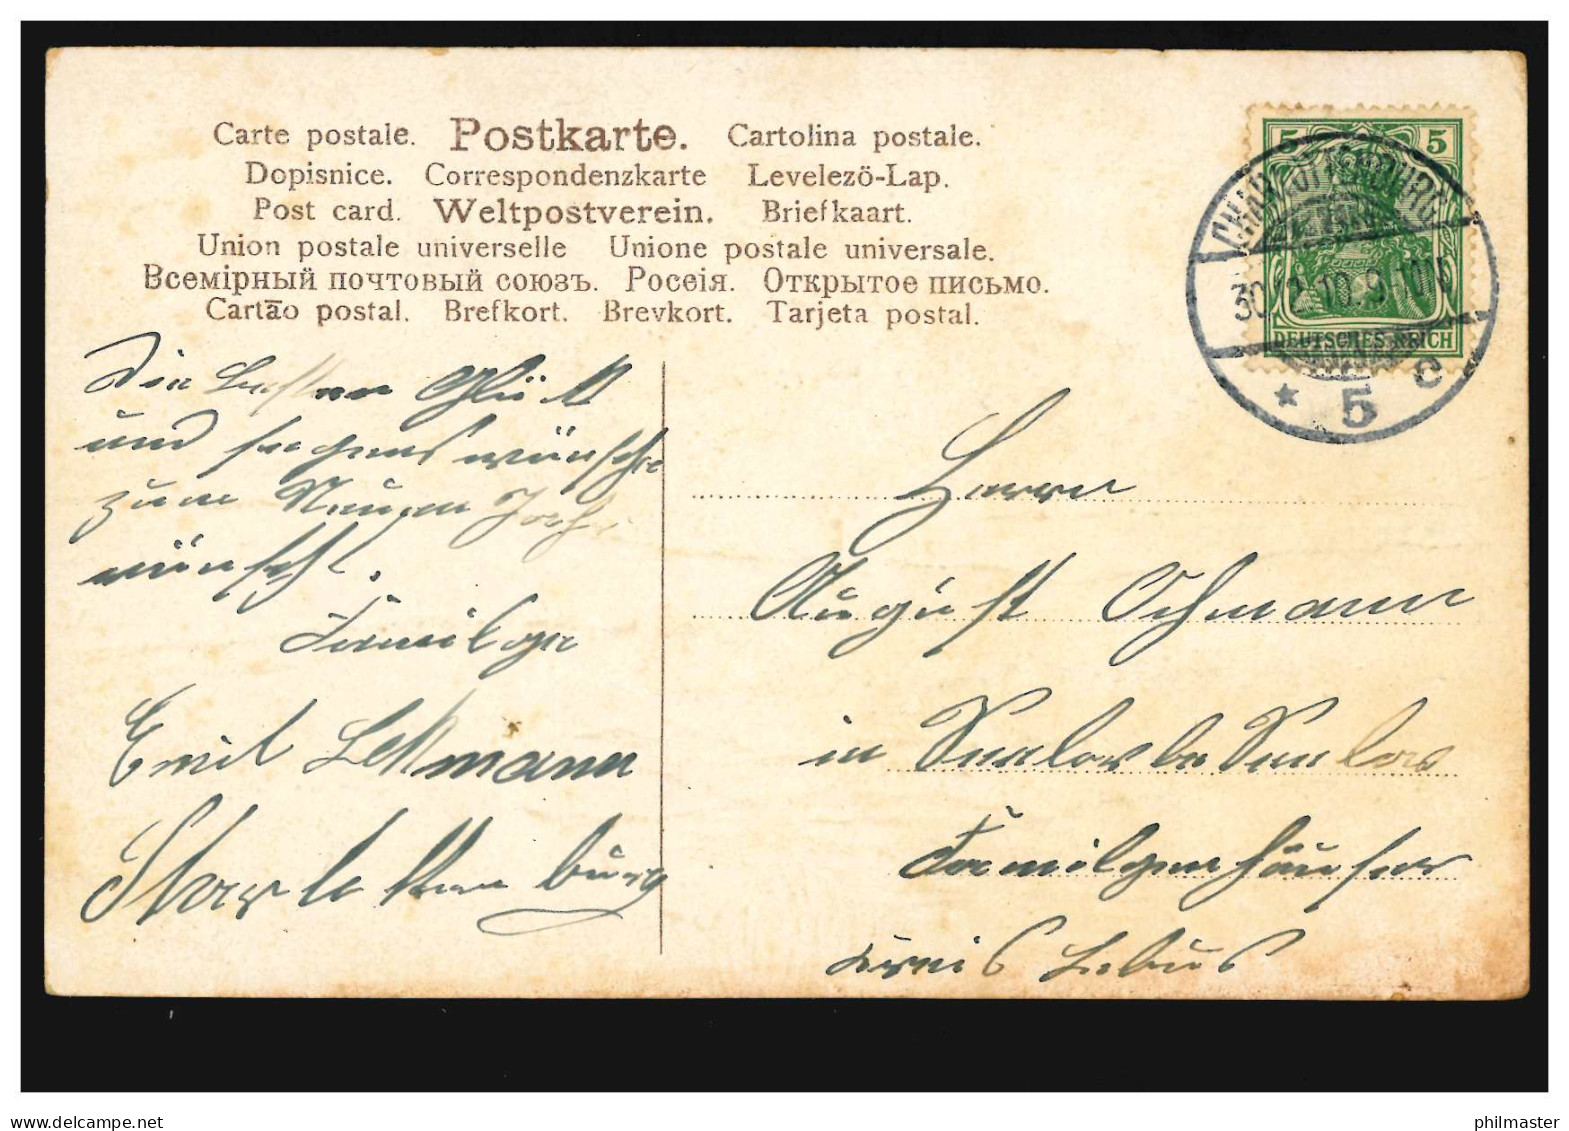 Carte postale. Postkarte. Cartolina postale.
Dopisnice. Correspondenzkarte Levelezö-Lap.
Post card. Weltpostverein. Briefkaart.
Union postale universelle Unione postale universale.
Всемірный почтовый союзъ. Росеія. Открытое письмо.
Cartāo postal. Brefkort. Brevkort. Tarjeta postal.
5 5
CHARLOTTENBURG
30.12.10. 9-10V
DEUTSCHES REICH
* 5 c
Die besten Glück
und segens wünsche
zum Neuen Jahr
wünscht.
Familge
Emil Lehmann
Scharlottenburg
Herrn
August Ochmann
in
Familgenhäuser
Kreis Lebus
philmaster
www.delcampe.net